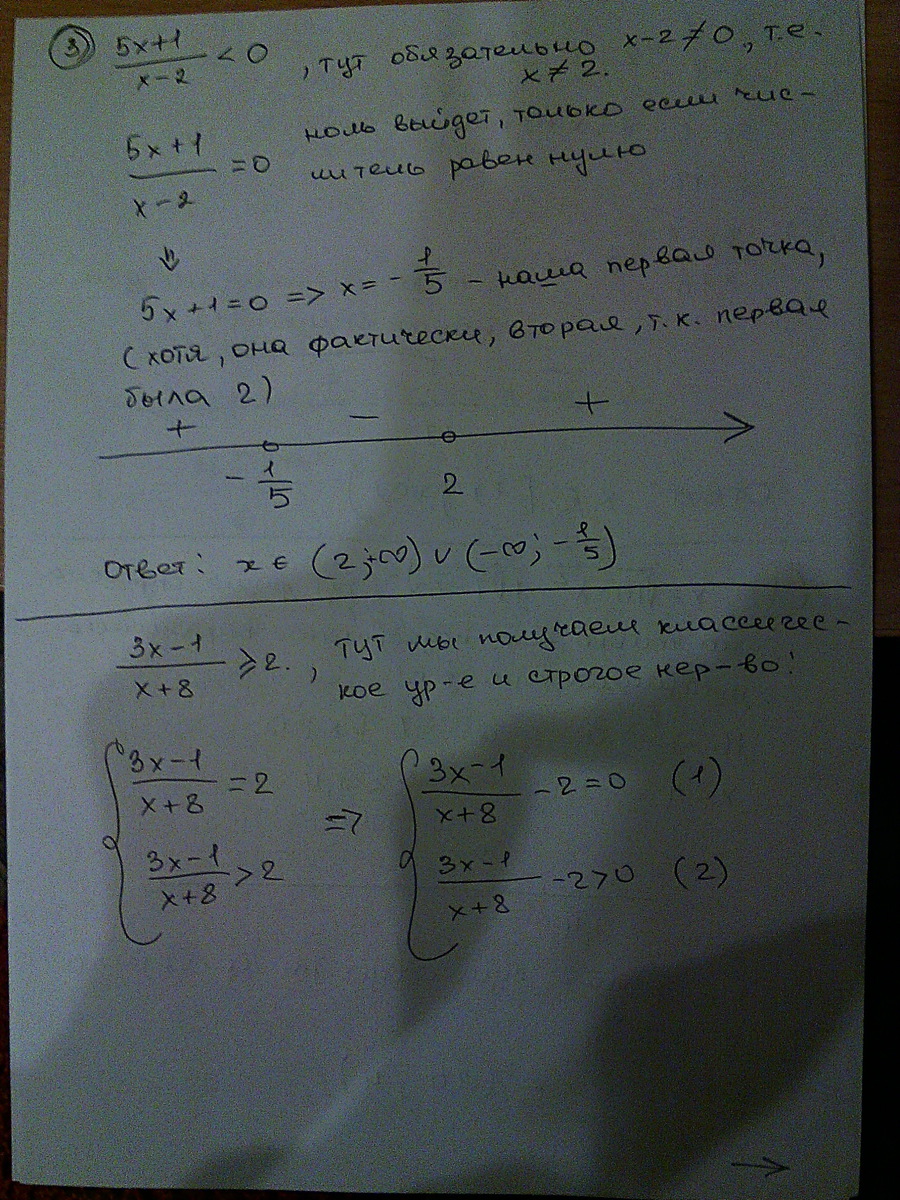 ③ (5x+1)/(x-2) < 0 , тут обязательно x-2≠0, т.е.
x≠2.
(5x+1)/(x-2) = 0 ноль выйдет, только если чис-
литель равен нулю
⇓
5x+1=0 => x= -1/5 - наша первая точка,
(хотя, она фактически, вторая, т.к. первая
была 2)
+ − +
-1/5 2
Ответ: x ∈ (2;+∞) ∪ (-∞; -1/5)
(3x-1)/(x+8) ⩾ 2. , тут мы получаем классичес-
кое ур-е и строгое нер-во!
{ (3x-1)/(x+8) = 2 => { (3x-1)/(x+8) -2=0 (1)
(3x-1)/(x+8) > 2 (3x-1)/(x+8) -2>0 (2)
→